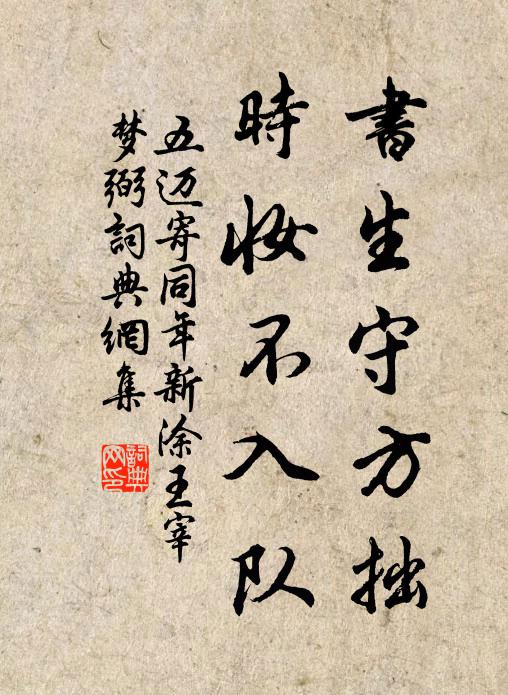 書生守方拙
時妝不入队
五迈寄同年新涂王宰
梦弼詞典網集
詞典网印